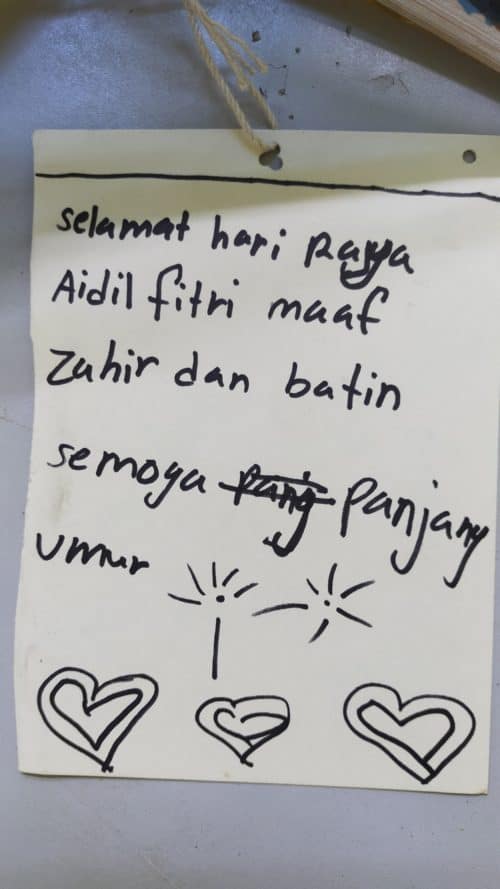 selamat hari Raya
Aidil fitri maaf
zahir dan batin
semoga panjang
umur